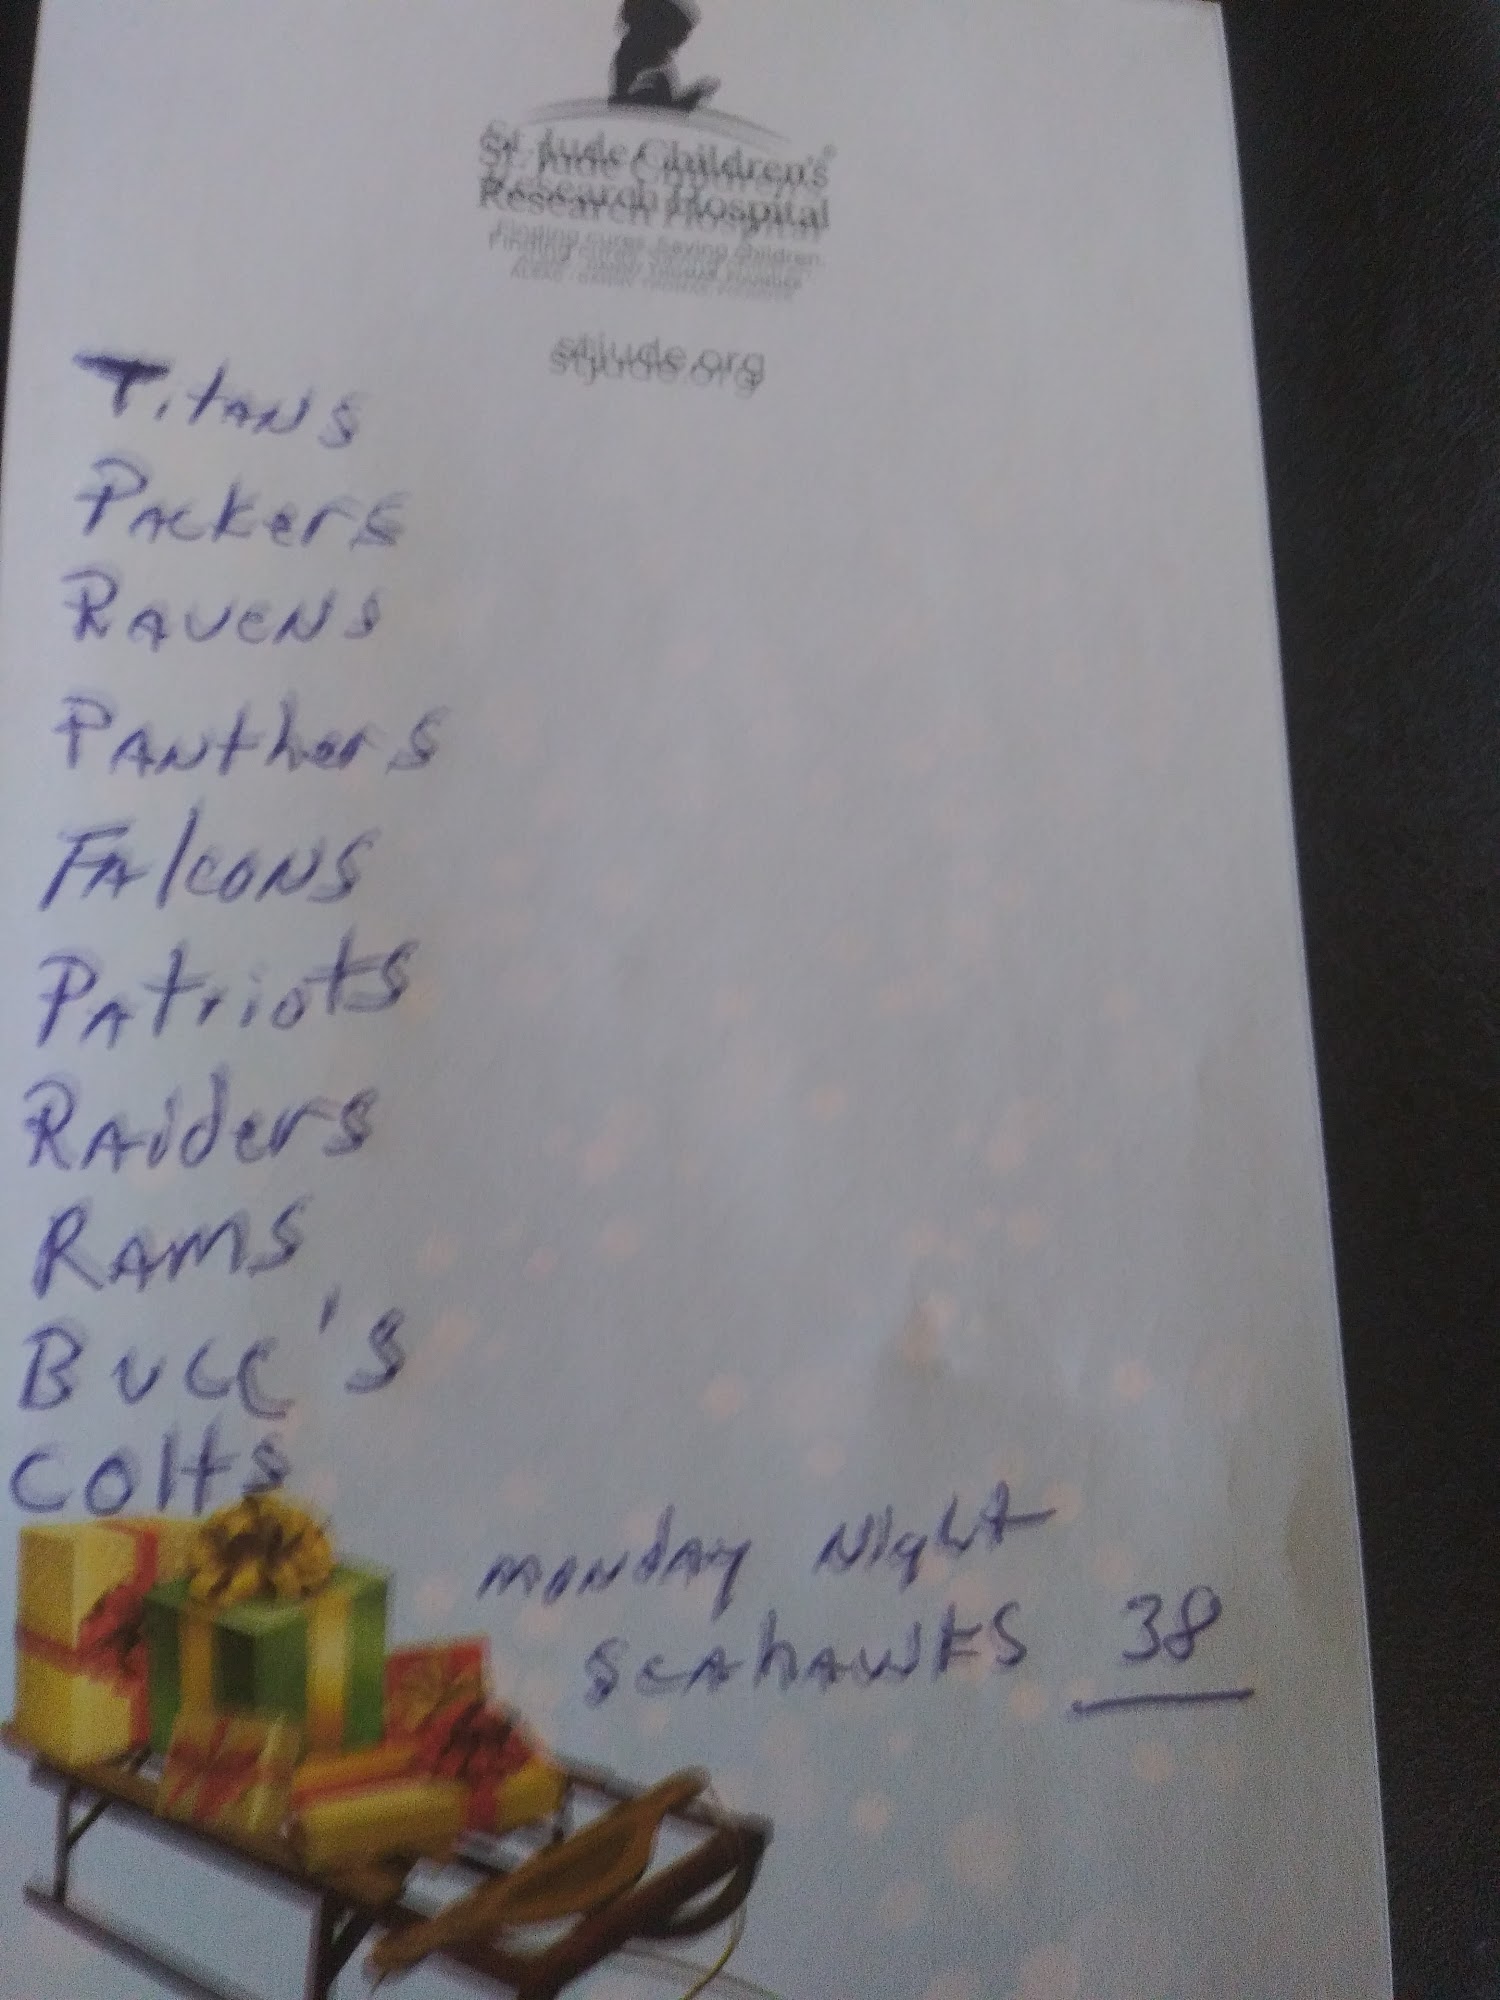 St. Jude Children's®
Research Hospital
Finding cures. Saving children.
ALSAC • DANNY THOMAS, FOUNDER
stjude.org
Titans
Packers
Ravens
Panthers
Falcons
Patriots
Raiders
Rams
Bucc's
Colts
Monday Night
Seahawks 38